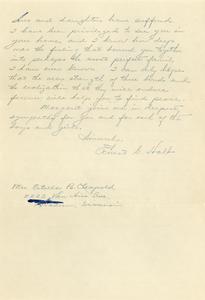 sons and daughters have suffered.
I have been privileged to see you in
your home, and I know how deep
was the feeling that bound you together
into perhaps the most perfect family
I have ever known. I can only hope
that the strength of these bonds and
the realization that they will endure
forever will help you to find peace.
Margaret joins me in deepest
sympathy for you and for each of the
boys and girls.
Sincerely,
Mrs. Estella B. Leopold
2222 Van Hise Ave.
Madison, Wisconsin